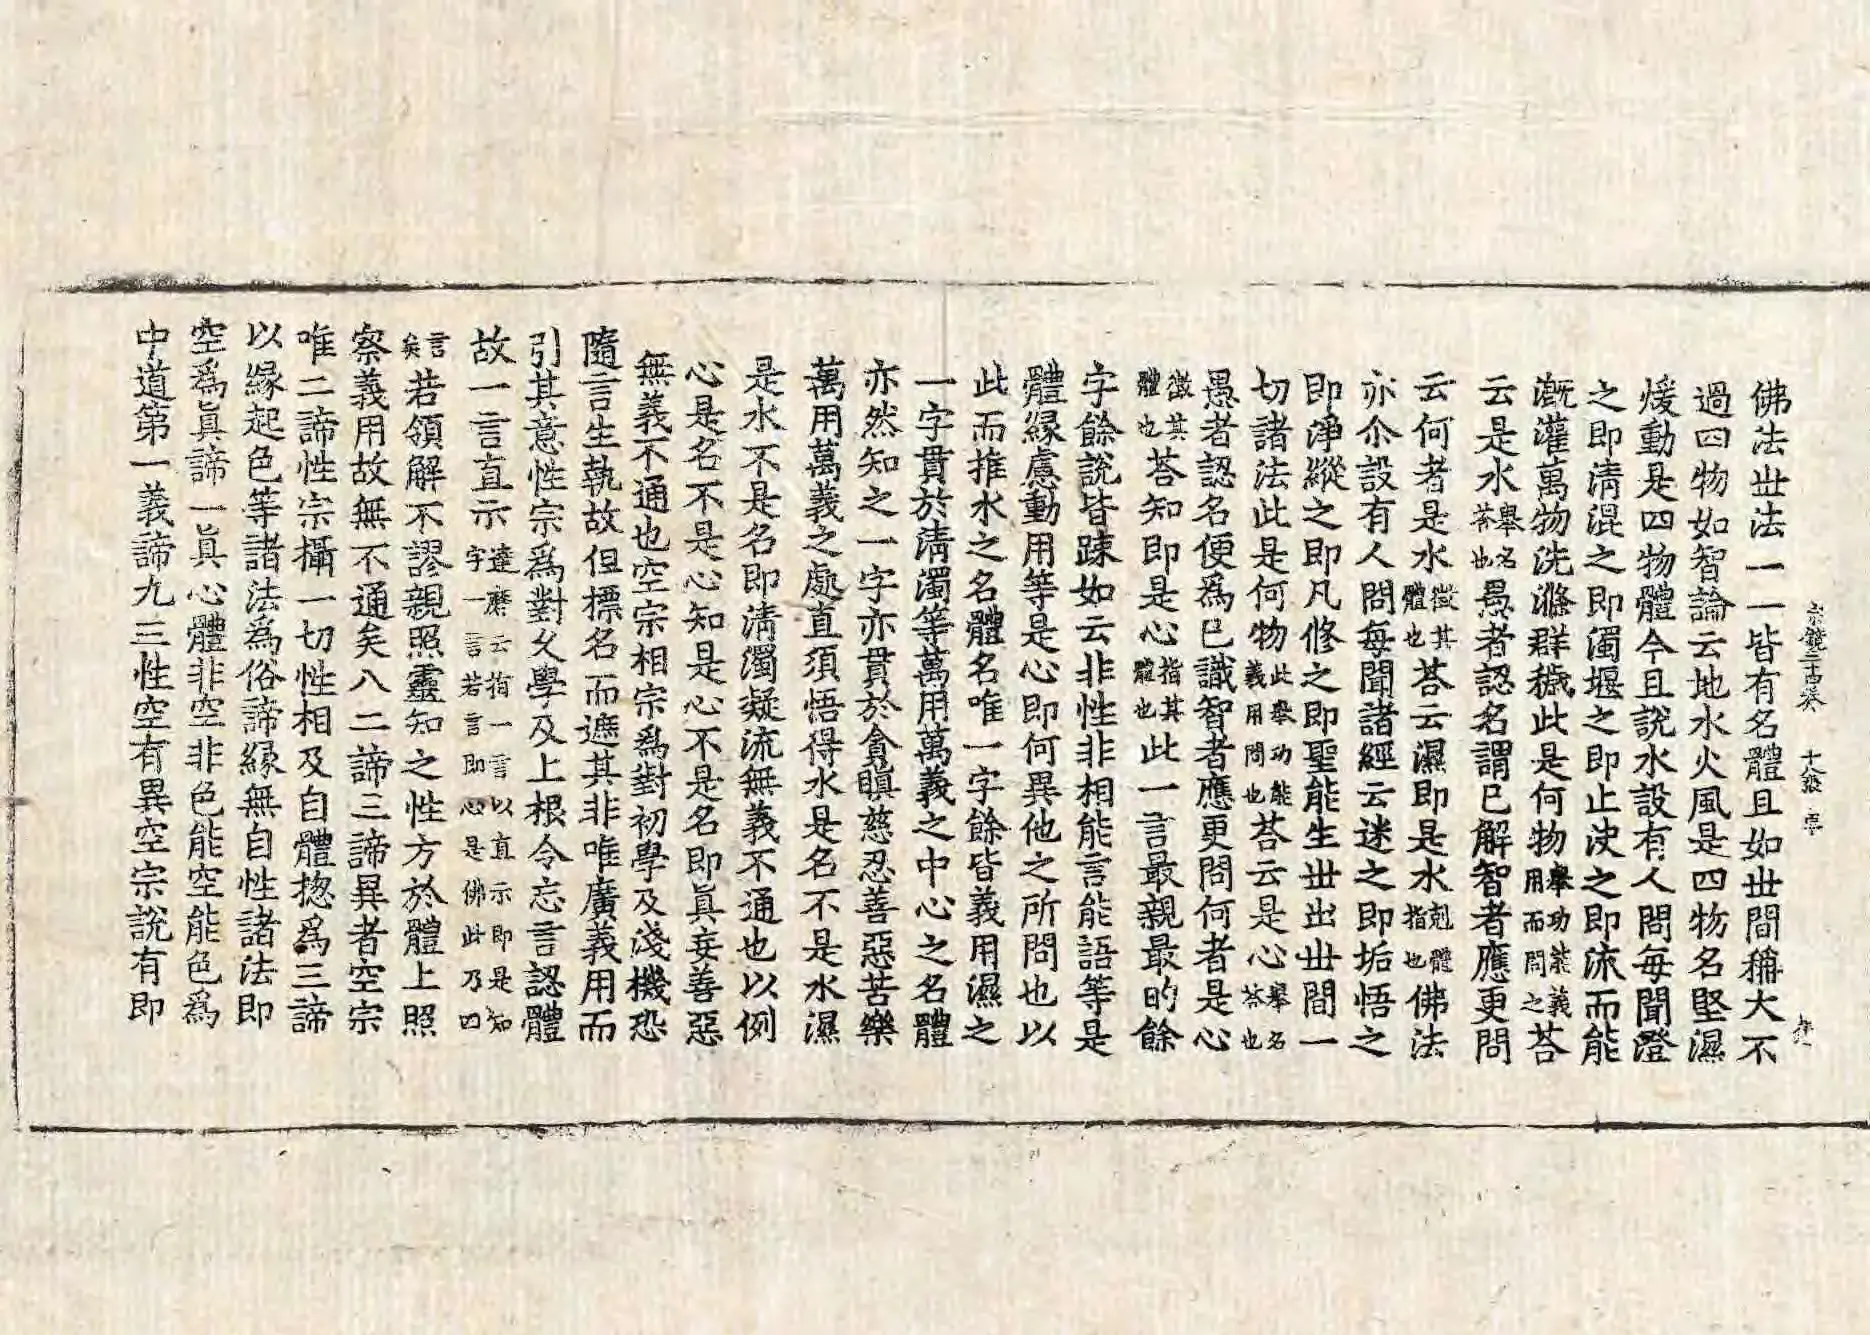 宗鏡三十四卷 十八張 雲
佛法世法一一皆有名體且如世間稱大不
過四物如智論云地水火風是四物名堅濕
煖動是四物體今且說水設有人問每聞澄
之即清混之即濁堰之即止決之即流而能
溉灌萬物洗滌群穢此是何物舉功能義用而問之荅
云是水舉名荅也愚者認名謂已解智者應更問
云何者是水徵其體也荅云濕即是水剋體指也佛法
亦尒設有人問每聞諸經云迷之即垢悟之
即淨縱之即凡修之即聖能生世出世間一
切諸法此是何物此舉功能義用問也荅云是心舉名荅也
愚者認名便爲已識智者應更問何者是心
徵其體也荅知即是心指其體也此一言最親最的餘
字餘說皆踈如云非性非相能言能語等是
體緣慮動用等是心即何異他之所問也以
此而推水之名體名唯一字餘皆義用濕之
一字貫於清濁等萬用萬義之中心之名體
亦然知之一字亦貫於貪瞋慈忍善惡苦樂
萬用萬義之處直須悟得水是名不是水濕
是水不是名即清濁凝流無義不通也以例
心是名不是心知是心不是名即眞妄善惡
無義不通也空宗相宗爲對初學及淺機恐
隨言生執故但標名而遮其非唯廣義用而
引其意性宗爲對久學及上根令忘言認體
故一言直示達磨云指一言以直示即是知字一言若言即心是佛此乃四
言矣若領解不謬親照靈知之性方於體上照
察義用故無不通矣八二諦三諦異者空宗
唯二諦性宗攝一切性相及自體揔爲三諦
以緣起色等諸法爲俗諦緣無自性諸法即
空爲眞諦一眞心體非空非色能空能色爲
中道第一義諦九三性空有異空宗說有即